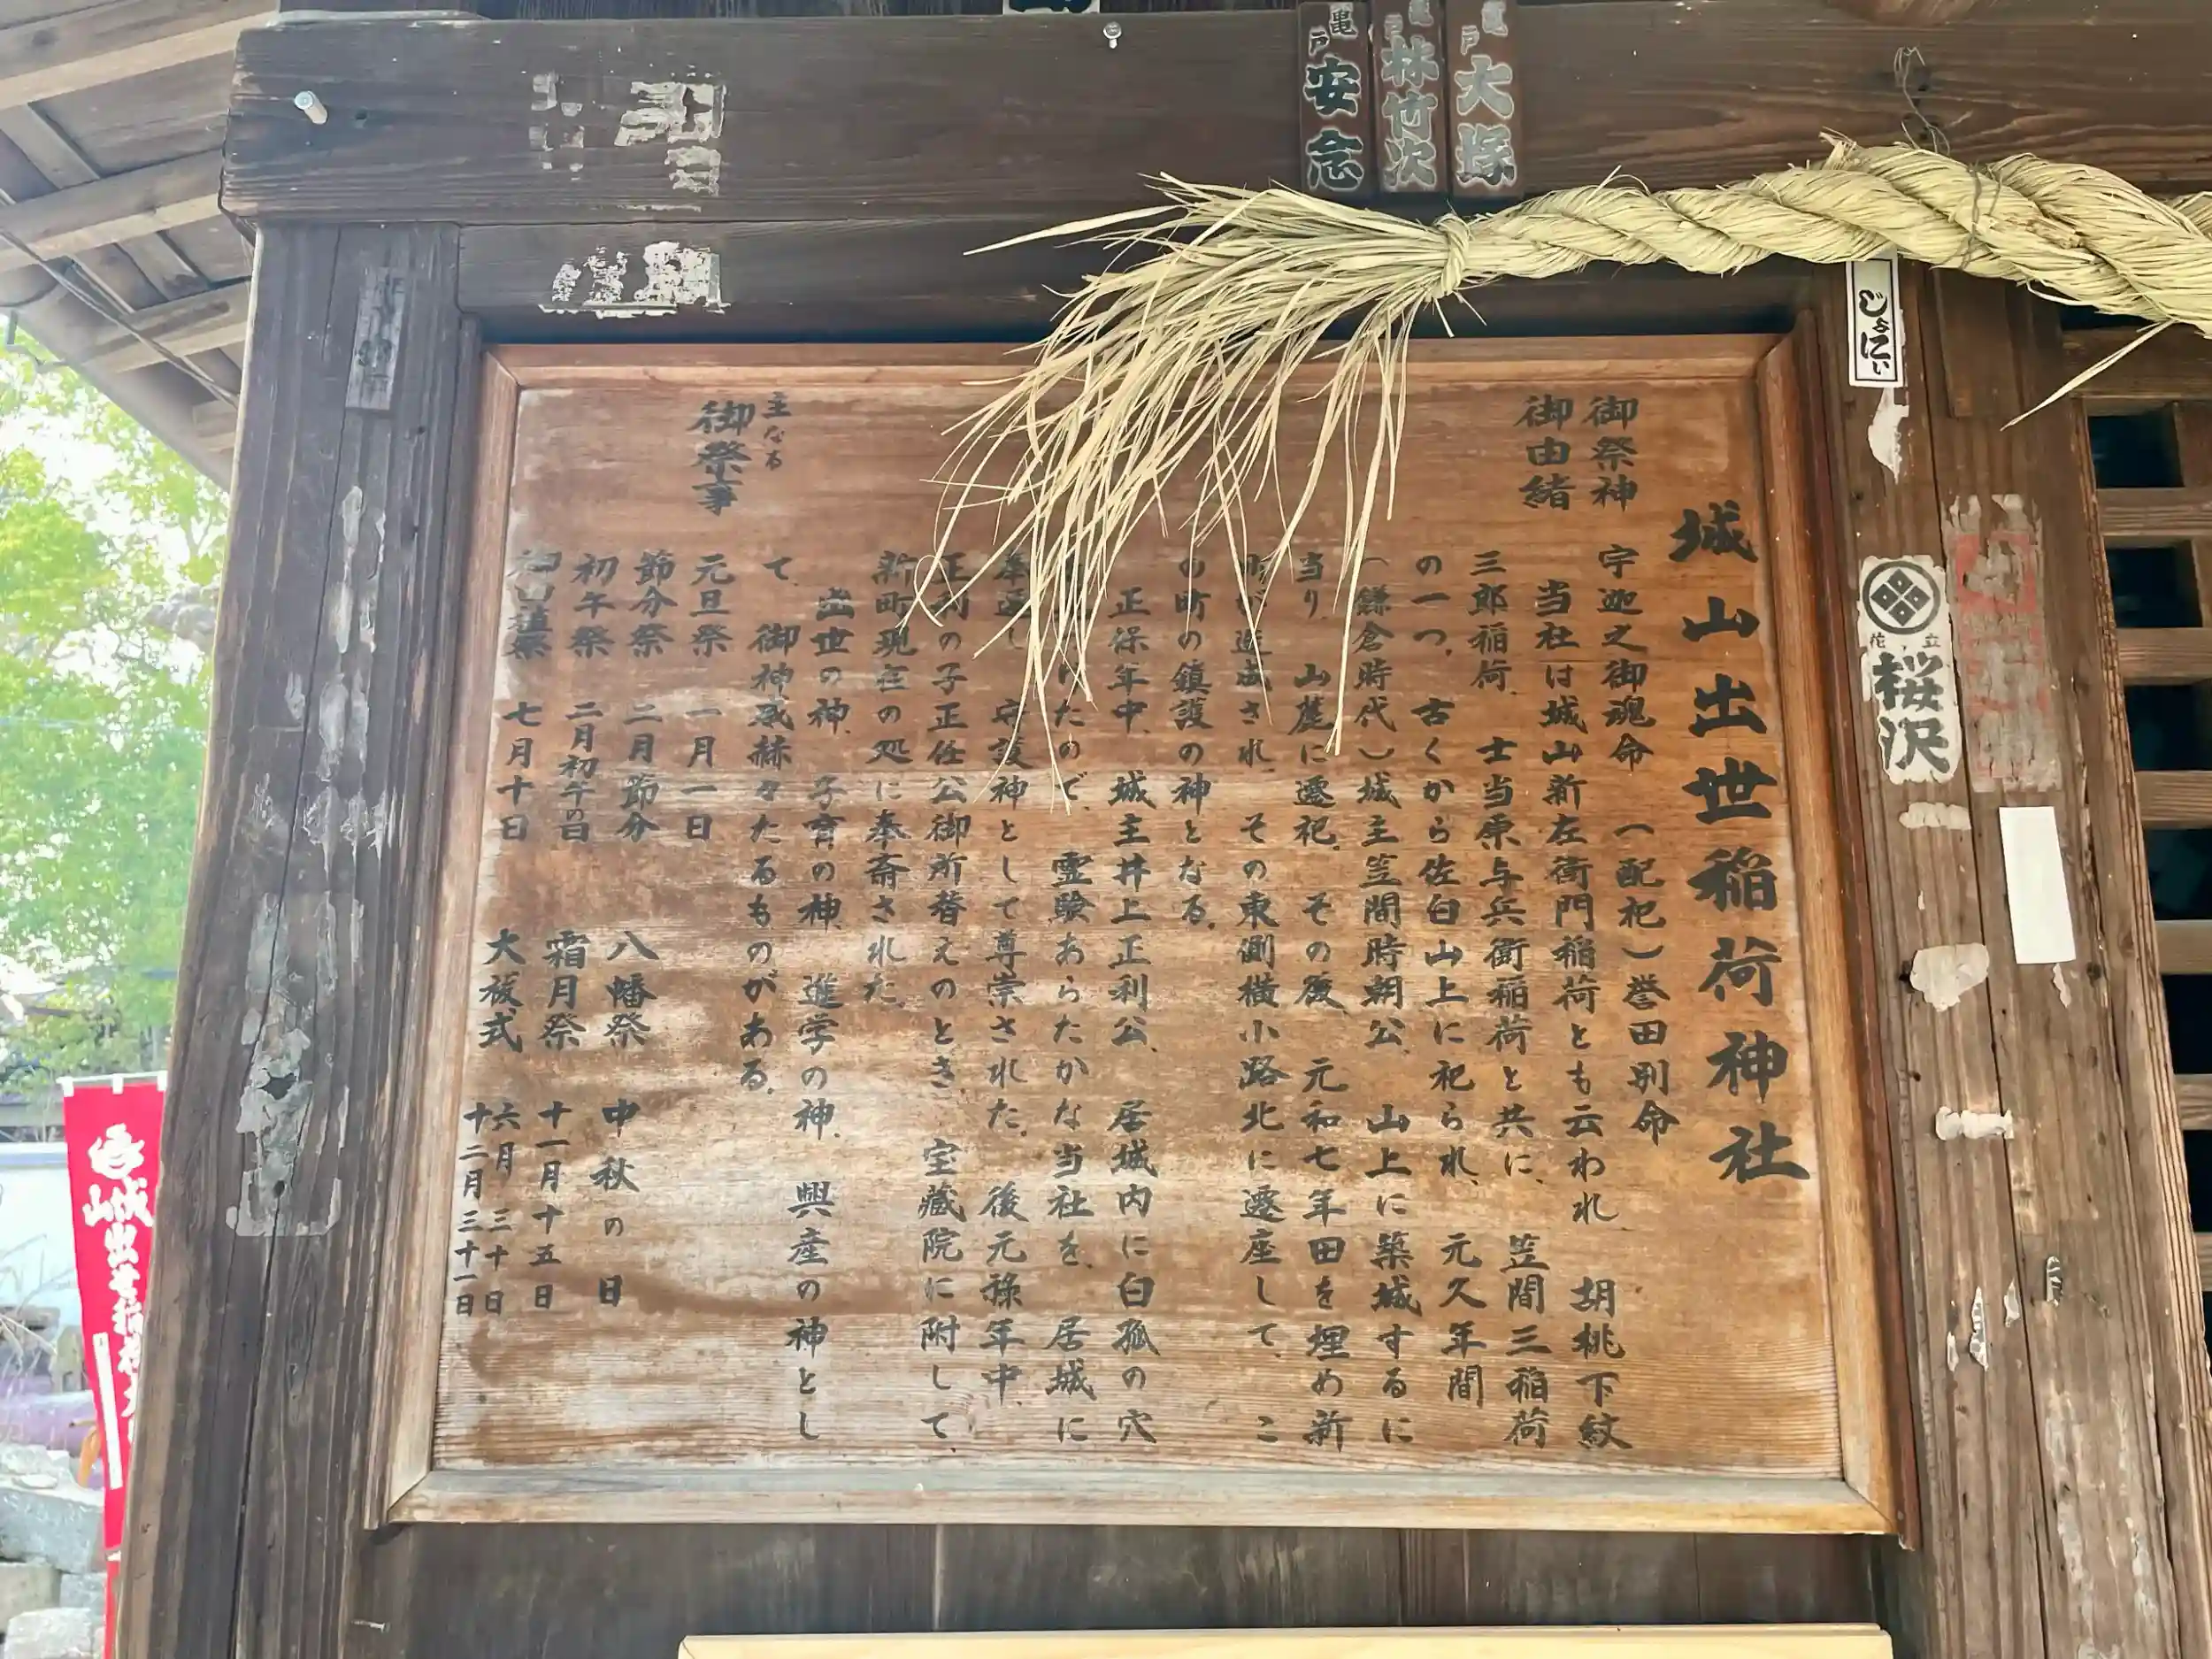 城山出世稲荷神社
御祭神 宇迦之御魂命 (配祀)誉田別命
御由緒 当社は城山新左衛門稲荷とも云われ 胡桃下紋
三郎稲荷、士当原与兵衛稲荷と共に、笠間三稲荷
の一つ、古くから佐白山上に祀られ、元久年間
(鎌倉時代)城主笠間時朝公、山上に築城するに
当り 山麓に遷祀。その後 元和七年田を埋め新
造成され、その東側横小路北に遷座して、こ
の町の鎮護の神となる。
正保年中、城主井上正利公、居城内に白狐の穴
たので、霊験あらたかな当社を、居城に
奉遷し 守護神として尊崇された。後元禄年中、
正利の子正任公御所替えのとき、宝蔵院に附して
新町現在の処に奉斎された。
出世の神、子育の神、進学の神、興産の神とし
て、御神威赫々たるものがある。
主なる
御祭事
元旦祭 一月一日
節分祭 二月節分
初午祭 二月初午の日
祭 七月十日
八幡祭 中秋の日
霜月祭 十一月十五日
大祓式 六月三十日
十二月三十一日
亀戸 大塚
亀戸 林竹次
亀戸 安念
じょにぃ
花立
桜沢
城山出世稲荷